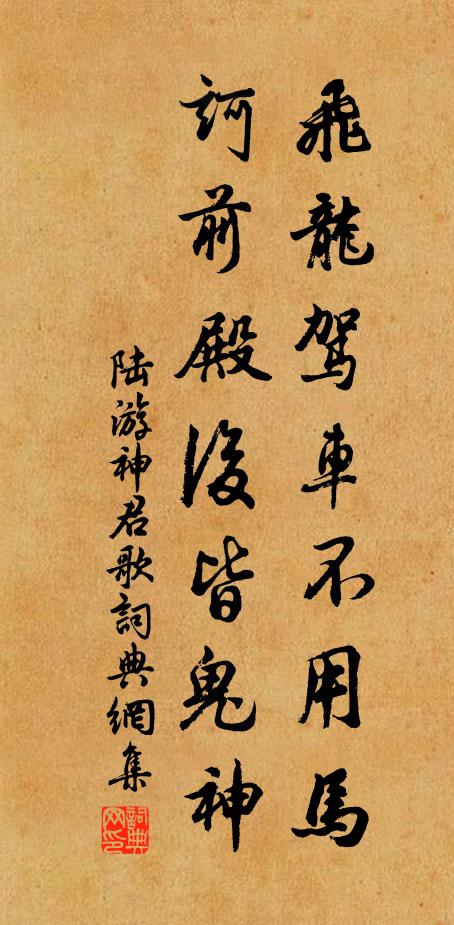 飛龍駕車不用馬
訶前殿後皆鬼神
陆游神君歌詞典網集
詞典網印